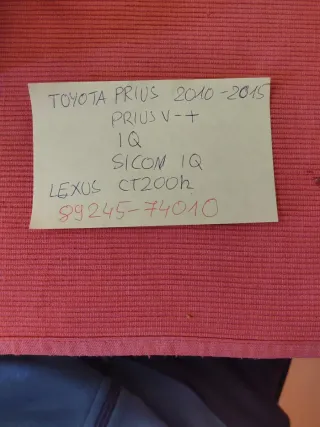 TOYOTA PRIUS 2010-2015
PRIUS V-+
IQ
SICON IQ
LEXUS CT200h
89245-74010